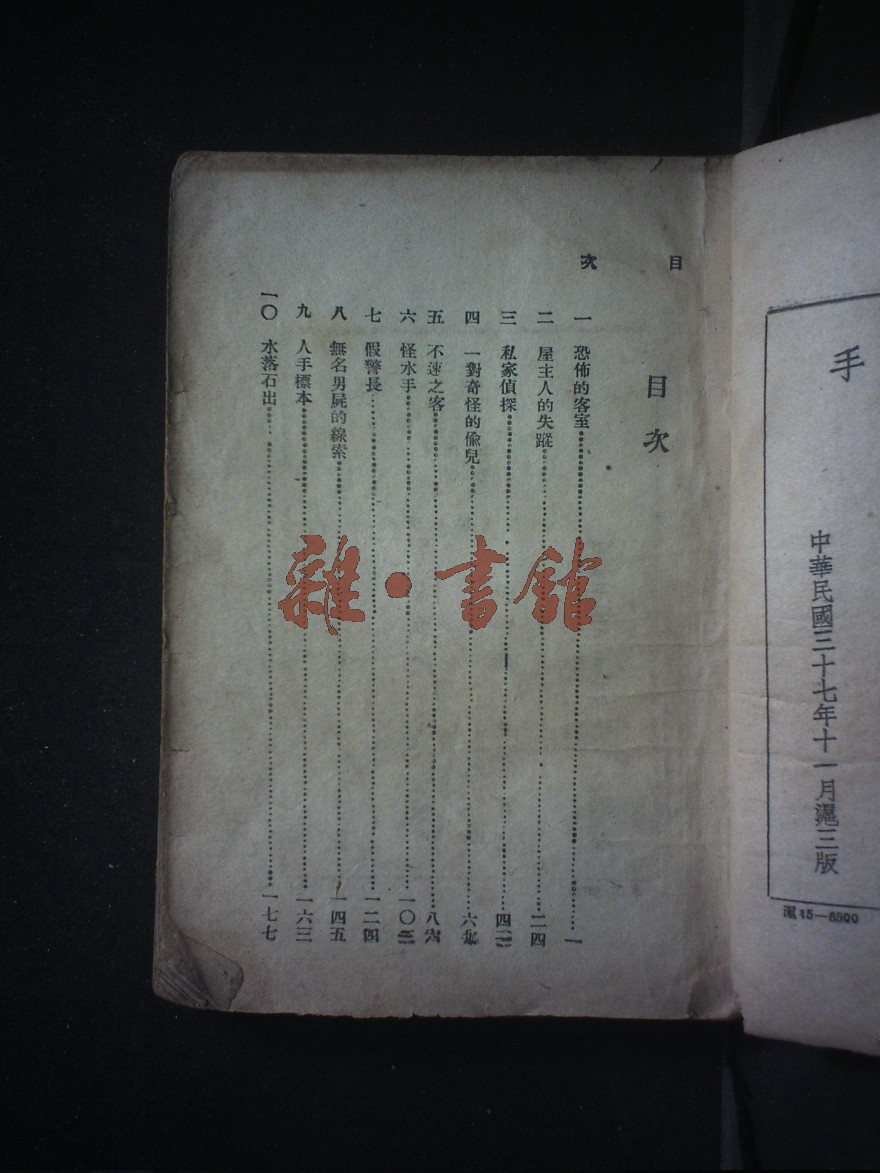 手
中華民國三十七年十一月滬三版
滬15—6500
目次
目次
一 恐佈的客室 一
二 屋主人的失蹤 二四
三 私家偵探 四二
四 一對奇怪的偷兒 六九
五 不速之客 八六
六 怪水手 一〇三
七 假警長 一二四
八 無名男屍的線索 一四五
九 人手標本 一六三
一〇 水落石出 一七七
雜·書館